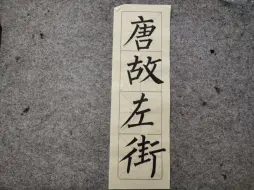 唐故左街